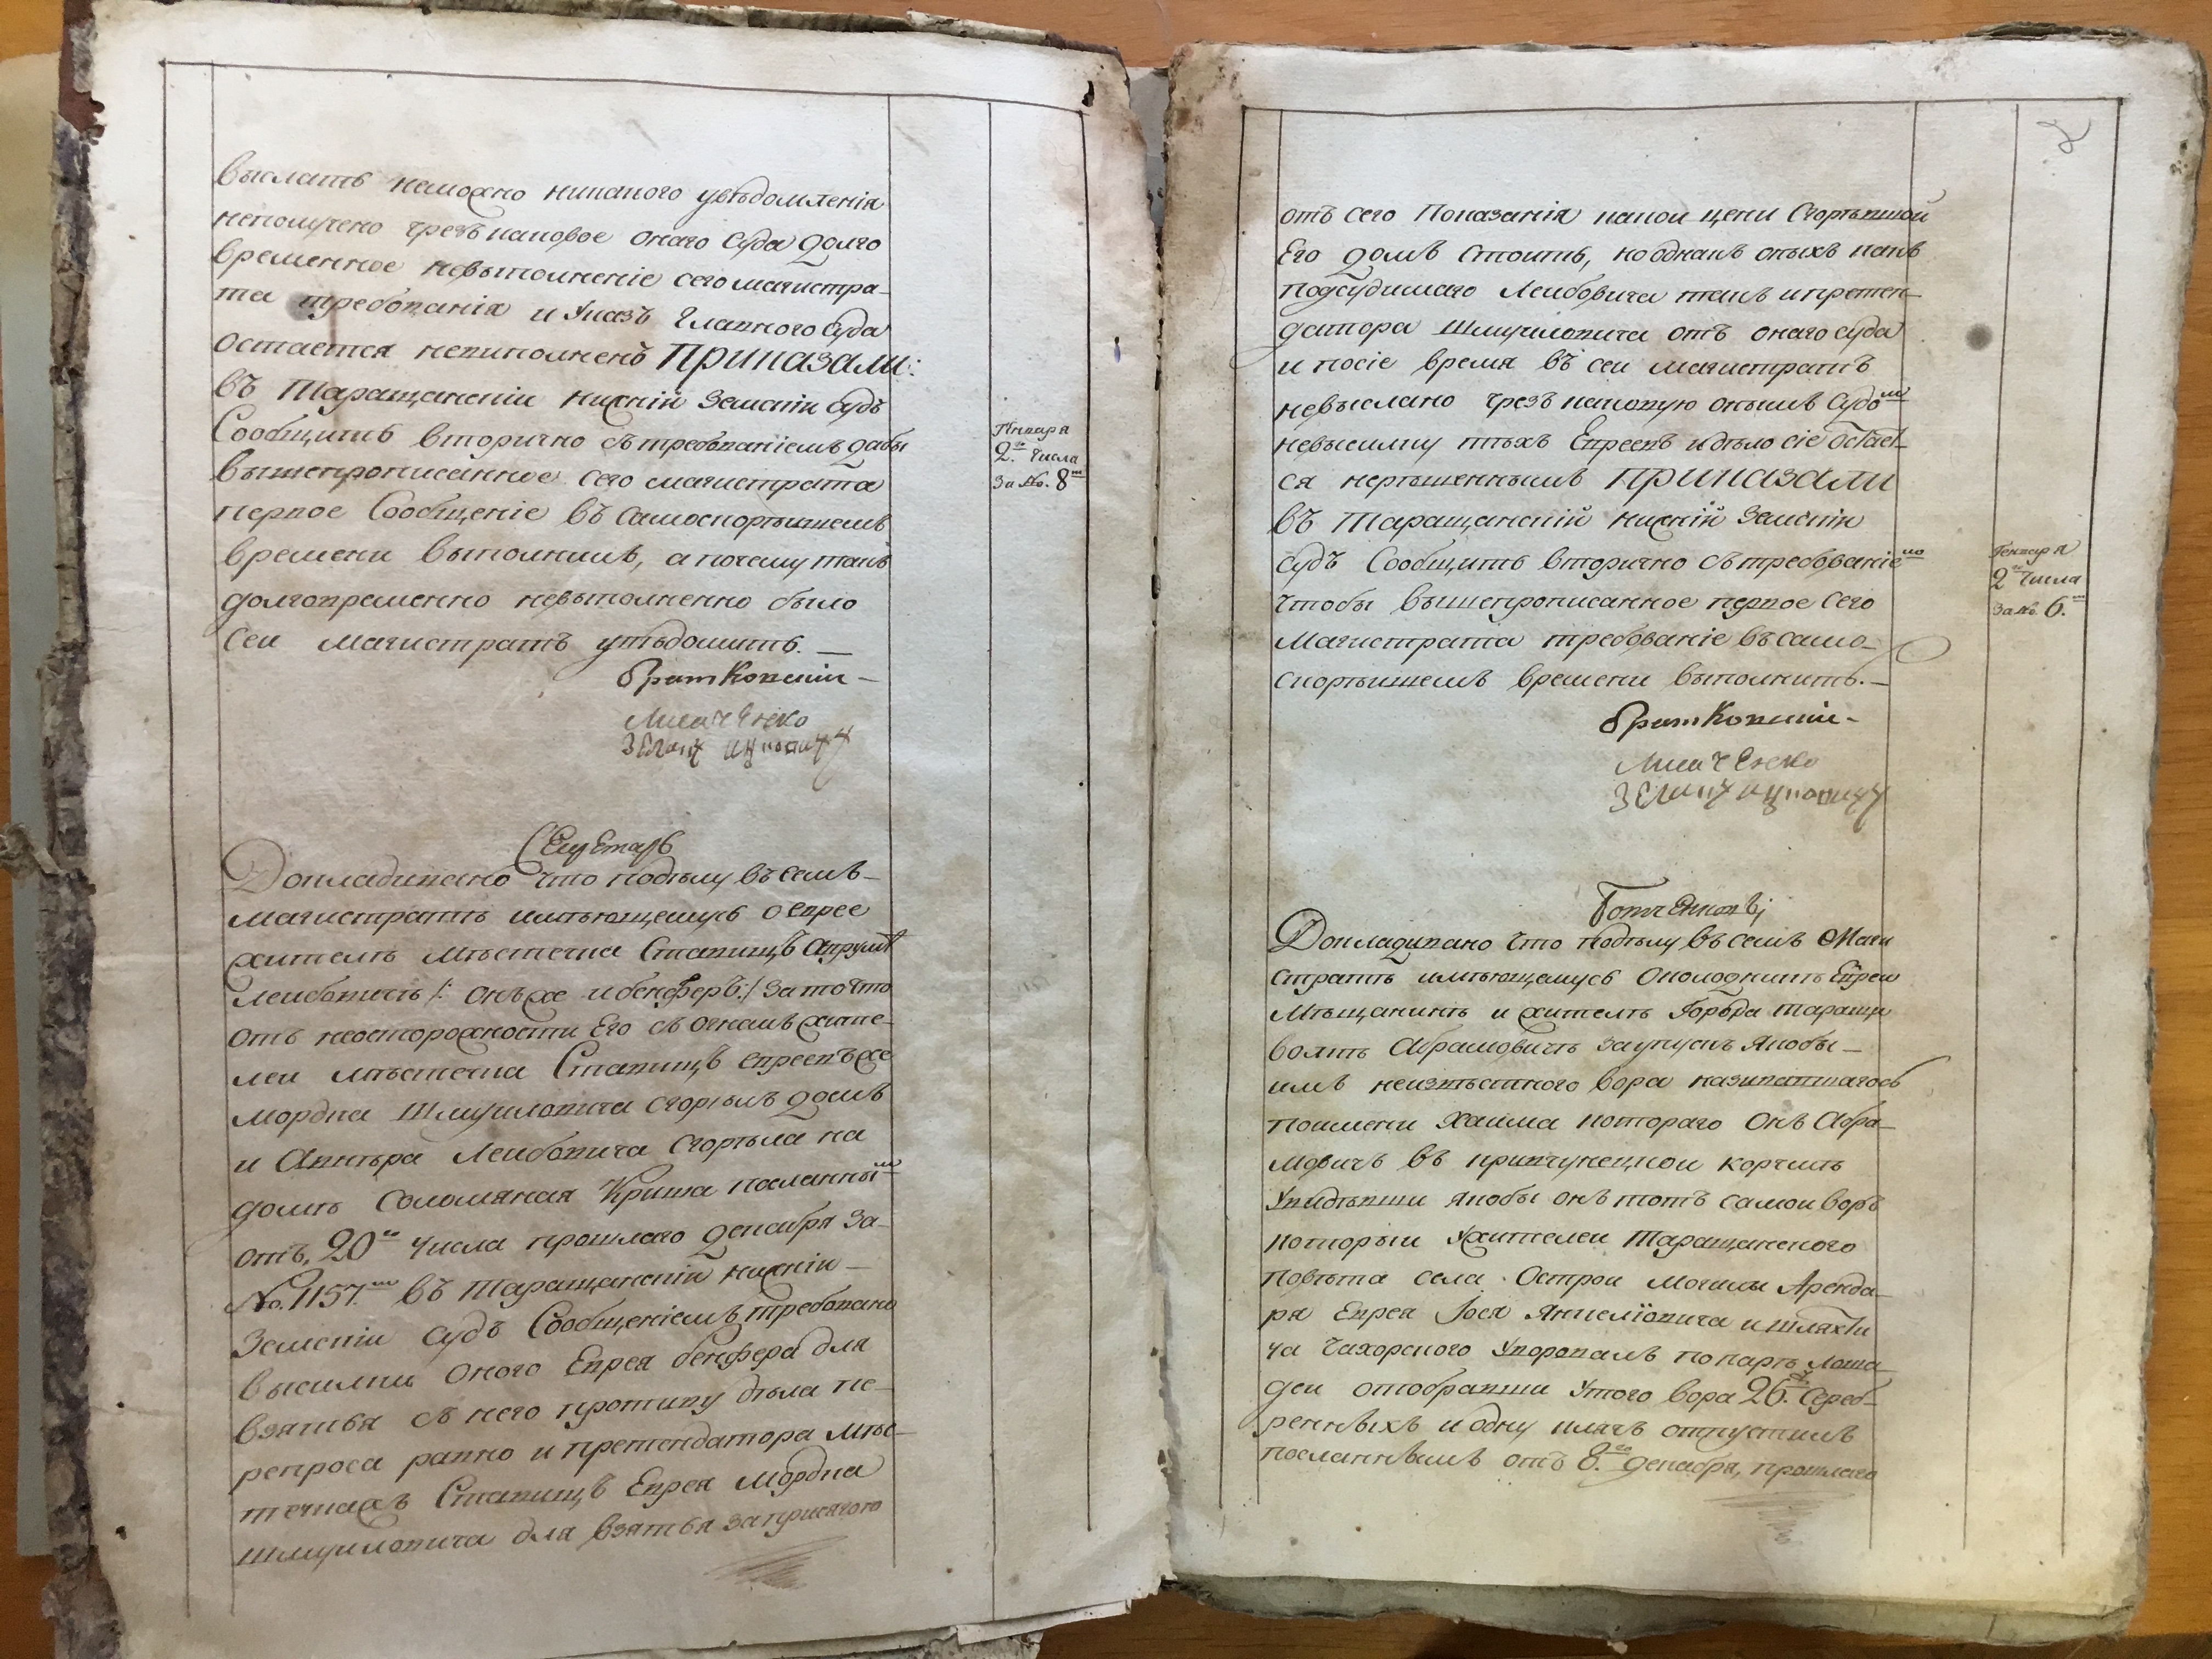 выслать неможно никакого увѣдомленія
неполучено чрезъ каковое онаго суда долго
временное невыполненіе сего магистра-
та требованія и Указъ Главного суда
остается невиполненъ Приказали:
въ Таращанскіи нижній Земскіи судъ
Сообщить вторично съ требованіемъ дабы
вышепрописанное сего магистрата
первое Сообщеніе въ самоскорѣишемъ
времени выполнилъ, а почему такъ
долговременно невыполненно было
сеи магистратъ увѣдомить. —
Братковскіи —
Генваря
2го числа
за №. 8м
Секретарь
Докладивано что подѣлу въ семъ
магистратѣ имѣющемусь о евреѣ
жителѣ мѣстечка Ставищъ
Леибовичѣ /: онъ же и бенферъ :/ за то что
отъ неосторожности Его съ огнемъ жите-
леи мѣстечка Ставищъ евреевъ же
мордка Шмуиловича сгорѣлъ домъ
и Леибовича сгорѣла на
домѣ соломяная Криша посланнимъ
отъ 20го числа прошлаго декабря за
№. 1157м въ Таращанскіи нижніи
Земскіи судъ Сообщеніемъ требовано
высилки оного Еврея бенфера для
взятья съ него противу дѣла пе-
репроса равно и претендатора мѣс-
течка жъ Ставищъ Еврея Мордка
Шмуиловича для взятья за присягою
2
отъ сего Показанія какои цени Сгорѣвшои
Его домъ стоитъ, но однакъ оныхъ какъ
подсудимаго Леибовича такъ и претен-
датора Шмуиловича отъ онаго суда
и посіе время въ сеи магистратъ
невыслано чрезъ каковую онымъ судомъ
невысилку тѣхъ Евреевъ и дѣло сіе остает-
ся нерѣшеннымъ Приказали
въ Таращанскій нижній Земскіи
судъ Сообщить вторично съ требованіемъ
чтобы вышепрописанное первое сего
Магистрата требованіе въ само-
скорѣишемъ времени выполнить. —
Братковскіи —
Генваря
2го числа
за №. 6м
Докладивано что подѣлу въ семъ Маги
стратѣ имѣющемусь о колодникѣ Евреи
Мѣщанинѣ и жителѣ Города таращи
волкѣ Абрамовичѣ за упускъ якобы
имъ неизвѣстного вора називавшагось
поимени Хаима котораго онъ Абра-
мовичъ въ кривчунецкои корчмѣ
Увидѣвши якобы онъ тотъ самои воръ
которыи Ужителеи Таращанского
повѣта села Острои могилы Аренда-
ря Еврея Іося Янкеліовича и шляхти
ча Чахорского Уворовалъ по парѣ лоша
деи отобравши Утого вора 26. сереб-
ренныхъ и одну клячъ отпустилъ
посланнымъ отъ 8го декабря, прошлаго